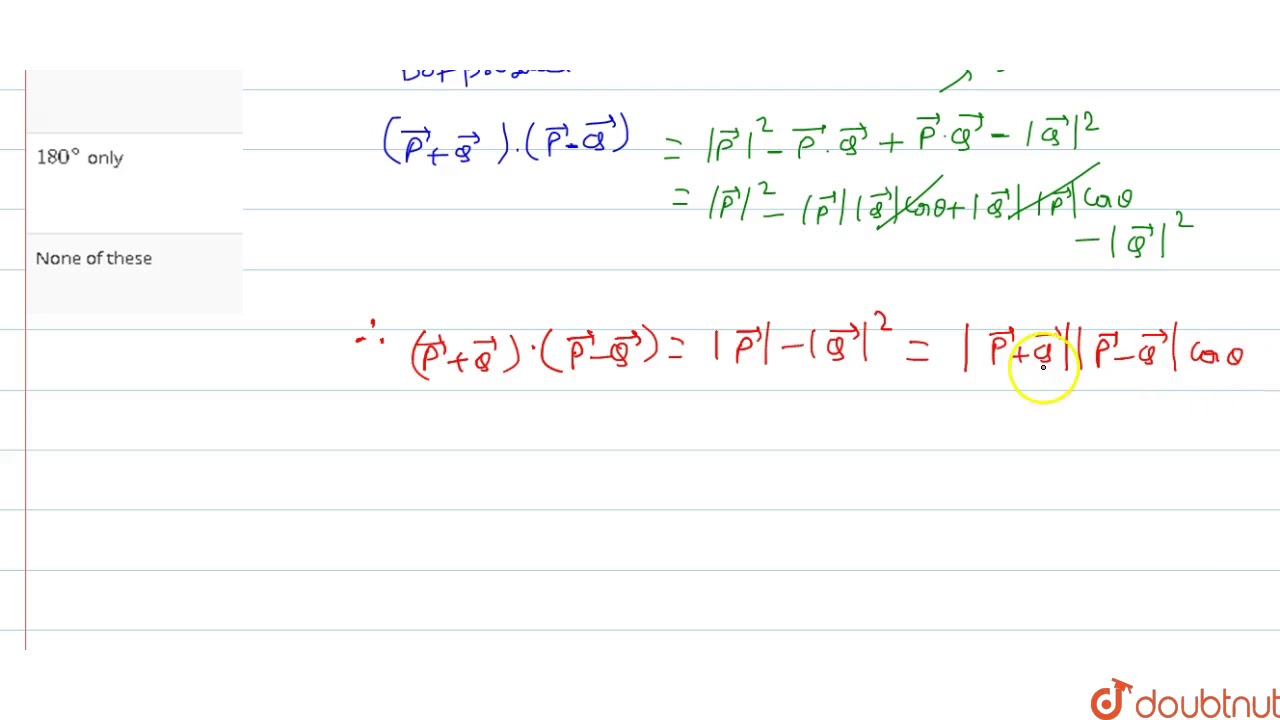 180° only
None of these
(P⃗+Q⃗).(P⃗-Q⃗) = |P⃗|² - P⃗.Q⃗ + P⃗.Q⃗ - |Q⃗|²
= |P⃗|² - |P⃗||Q⃗|cosθ + |Q⃗||P⃗|cosθ
- |Q⃗|²
∴ (P⃗+Q⃗).(P⃗-Q⃗) = |P⃗| - |Q⃗|² = |P⃗+Q⃗||P⃗-Q⃗|cosθ
doubtnut